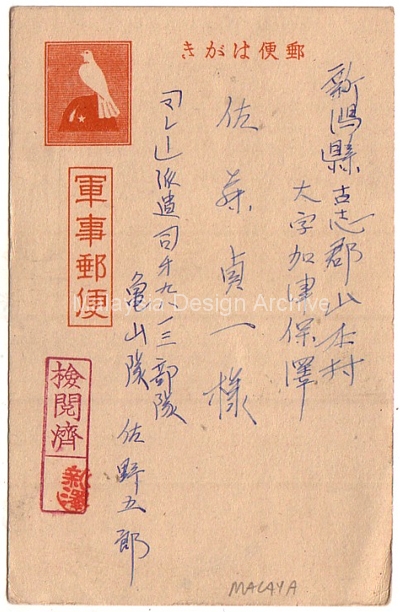 郵便はがき
新潟縣古志郡山本村
大字加津保澤
佐藤貞一様
「マレー」派遣 九一三部隊
亀山隊 佐野五郎
軍事郵便
檢閲濟
Malaysia Design Archive
MALAYA